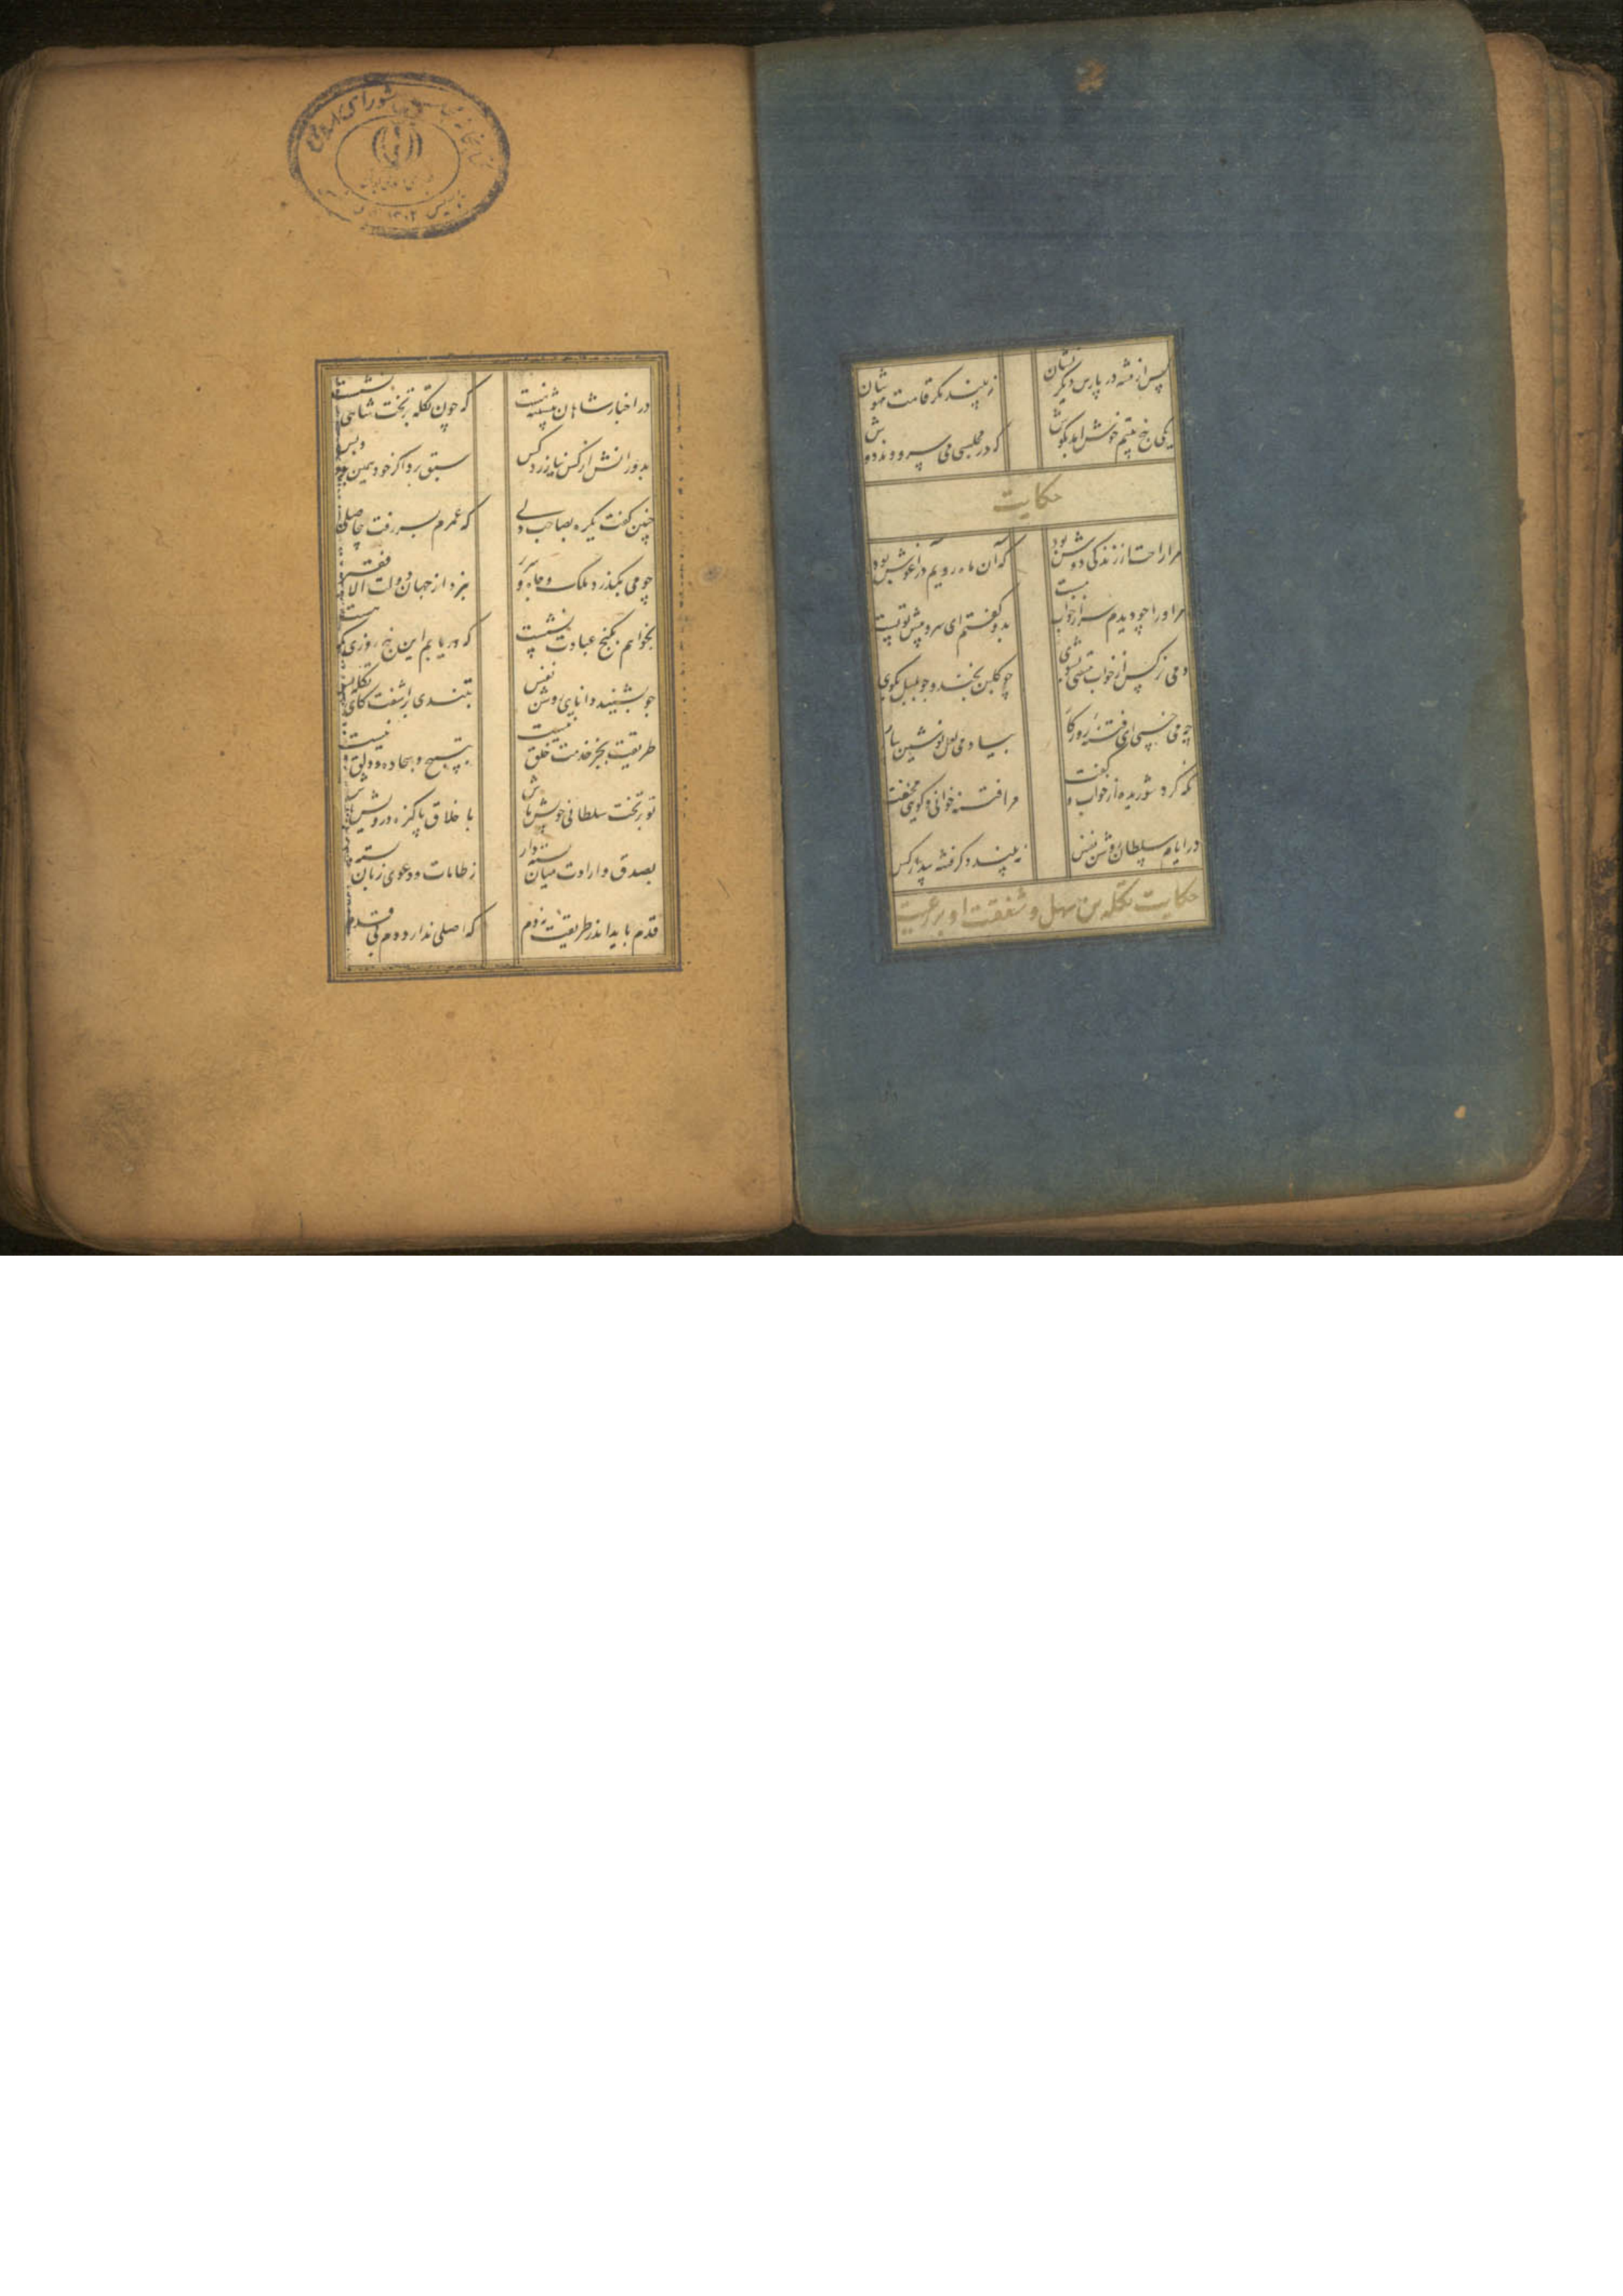 پس از فتنه در پارس دیگر نشان
نبیند مگر قامت مهوشان
یکی پنج بیتم خوش آمد بگوش
که در مجلسی می سرودند دوش
حکایت
مرا راحت از زندگی دوش بود
که آن ماه رویم در آغوش بود
مر او را چو دیدم سر از خواب مست
بدو گفتم ای سرو پیش تو پست
دمی نرگس از خواب مستی بشوی
چو گلبن بخند و چو بلبل بگوی
چه می خسپی ای فتنه روزگار
بیا و می لعل نوشین بیار
نگه کرد شوریده از خواب و گفت
مرا فتنه خوانی و گویی مخفت
در ایام سلطان روشن نفس
نبیند دگر فتنه بیدار کس
حکایت تکله بن سهل و شفقت او بر رعیت
در اخبار شاهان پیشینه هست
که چون تکله بر تخت شاهی نشست
بدورانش از کس نیازرد کس
سبق برد اگر خود همین بود و بس
چنین گفت یکره بصاحب دلی
که عمرم بسر رفت بی حاصلی
چو می بگذرد ملک و جاه و سریر
نبرد از جهان دولت الا فقیر
بخواهم بکنج عبادت نشست
که دریابم این پنج روزی که هست
چو بشنید دانای روشن نفس
بتندی برآشفت کای تکله بس
طریقت بجز خدمت خلق نیست
بتسبیح و سجاده و دلق نیست
تو بر تخت سلطانی خویش باش
با خلاق پاکیزه درویش باش
بصدق و ارادت میان بسته دار
ز طامات و دعوی زبان بسته
قدم باید اندر طریقت نه دم
که اصلی ندارد دم بی قدم